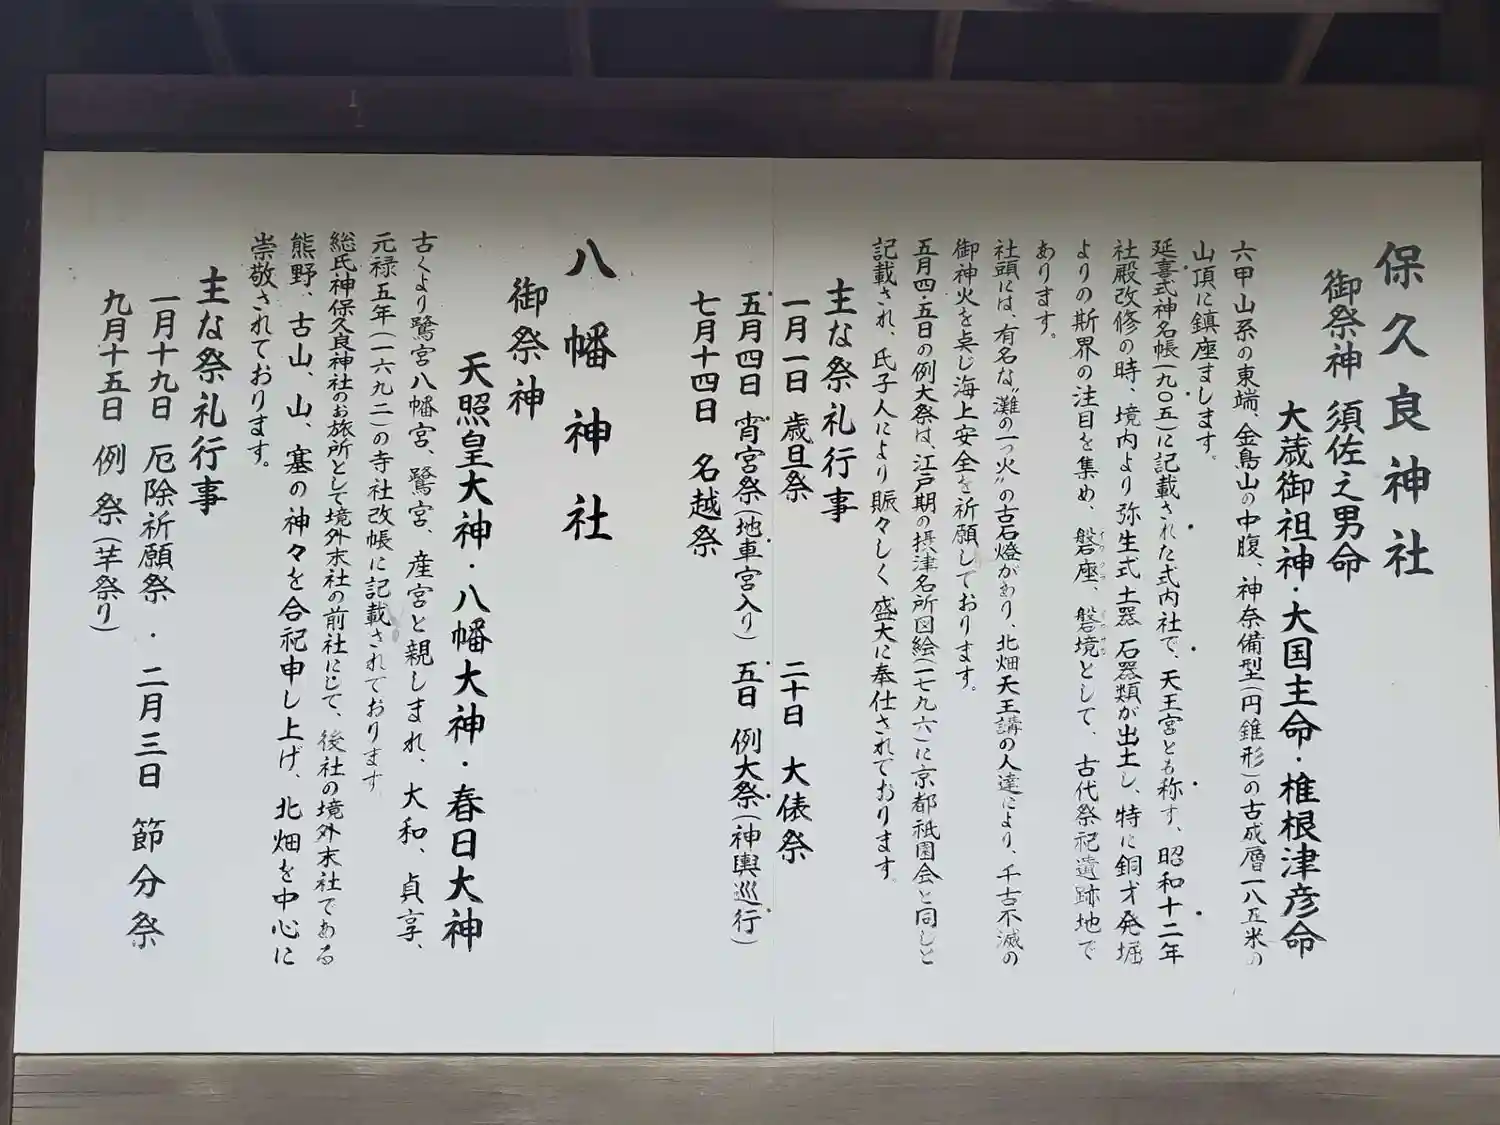 保久良神社
御祭神 須佐之男命
大歳御祖神・大国主命・椎根津彦命
六甲山系の東端、金鳥山の中腹、神奈備型(円錐形)の古成層一八五米の
山頂に鎮座まします。
延喜式神名帳(九〇五)に記載された式内社で、天王宮とも称す、昭和十二年
社殿改修の時、境内より弥生式土器 石器類が出土し、特に銅才発堀
よりの斯界の注目を集め、磐座、磐境として、古代祭祀遺跡地で
あります。
社頭には、有名な〝灘の一つ火〟の古石燈があり、北畑天王講の人達により、千古不滅の
御神火を点じ海上安全を祈願しております。
五月四・五日の例大祭は、江戸期の摂津名所図絵(一七九六)に京都祇園会と同じと
記載され、氏子人により賑々しく盛大に奉仕されております。
主な祭礼行事
一月一日 歳旦祭 二十日 大俵祭
五月四日 宵宮祭(地車宮入り) 五日 例大祭(神輿巡行)
七月十四日 名越祭
八幡神社
御祭神
天照皇大神・八幡大神・春日大神
古くより鷺宮八幡宮、鷺宮、産宮と親しまれ、大和、貞享、
元禄五年(一六九二)の寺社改帳に記載されております
総氏神保久良神社のお旅所として境外末社の前社にして、後社の境外末社である
熊野、古山、山、塞の神々を合祀申し上げ、北畑を中心に
崇敬されております。
主な祭礼行事
一月十九日 厄除祈願祭 ・ 二月三日 節分祭
九月十五日 例祭(芋祭り)